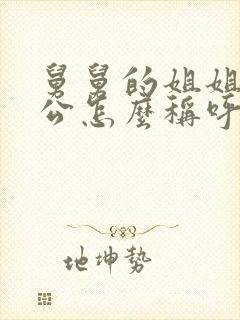 舅舅的姐姐
公怎麼稱呼
地坤勢